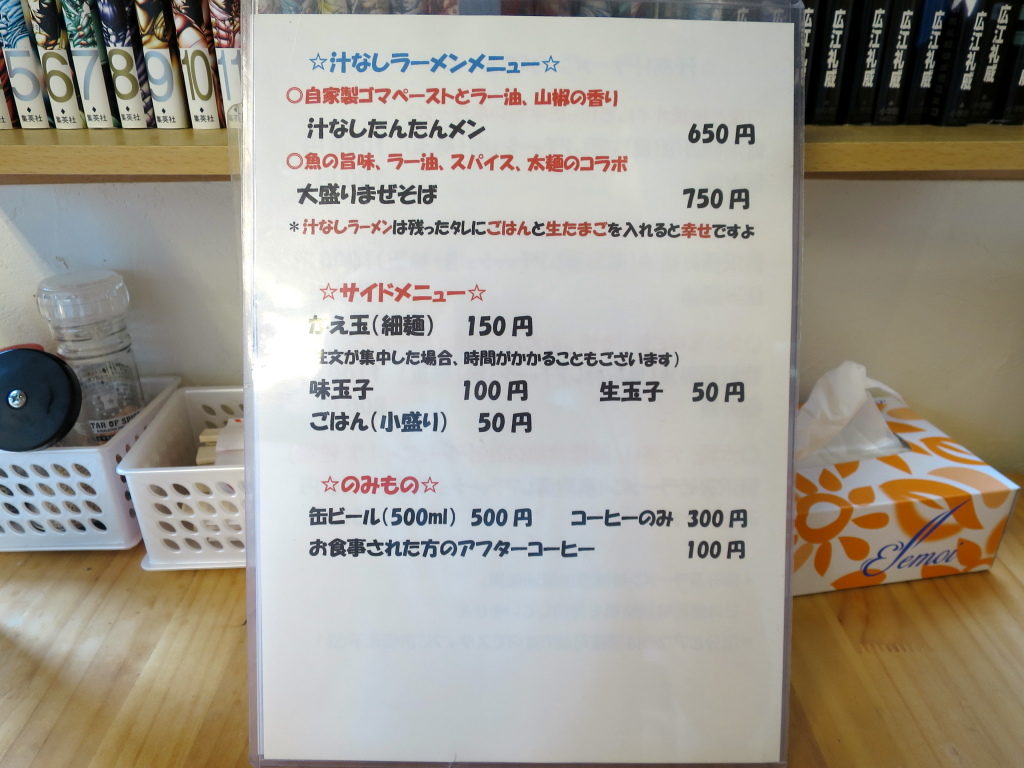 5 6 7 8 9 10 11
集英社 集英社 集英社 集英社 集英社 集英社
広江礼威 広江礼威 広江礼威 広江礼威 広江礼威
☆汁なしラーメンメニュー☆
○自家製ゴマペーストとラー油、山椒の香り
汁なしたんたんメン 650円
○魚の旨味、ラー油、スパイス、太麺のコラボ
大盛りまぜそば 750円
*汁なしラーメンは残ったタレにごはんと生たまごを入れると幸せですよ
☆サイドメニュー☆
かえ玉(細麺) 150円
注文が集中した場合、時間がかかることもございます)
味玉子 100円 生玉子 50円
ごはん(小盛り) 50円
☆のみもの☆
缶ビール(500ml) 500円 コーヒーのみ 300円
お食事された方のアフターコーヒー 100円
Elemoi